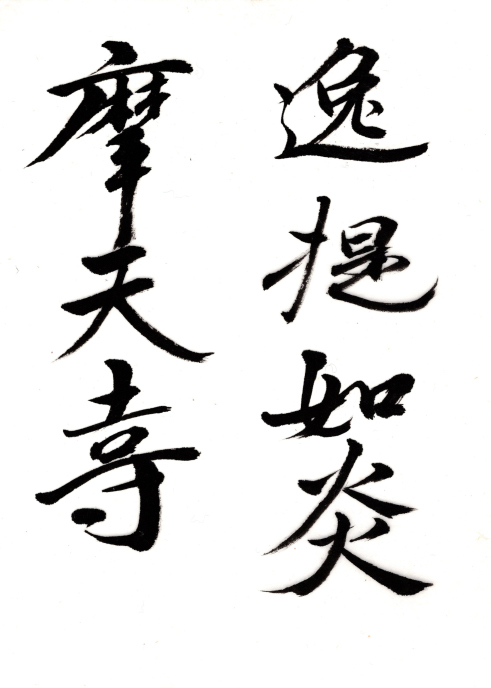 逸提如炎
摩天寺